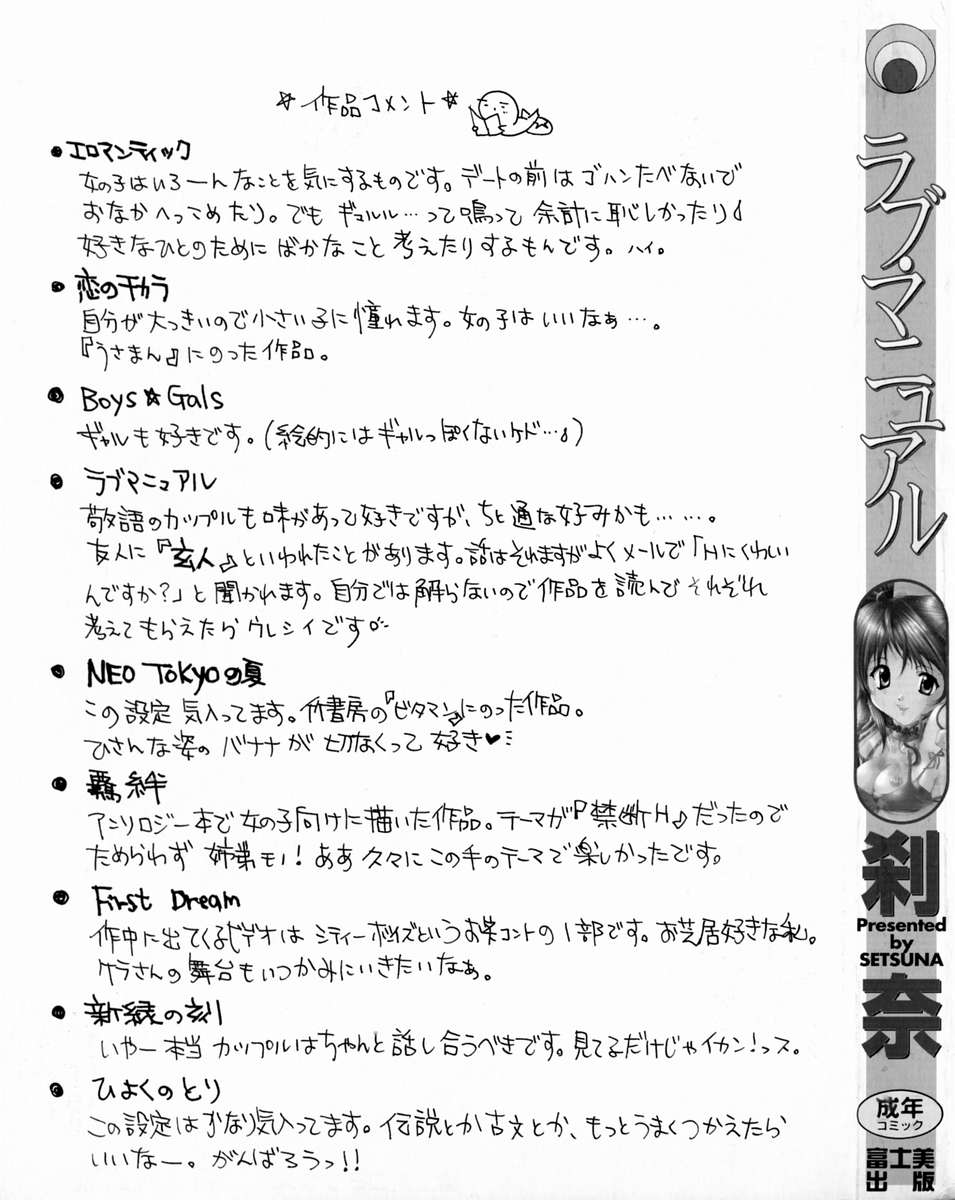 ☆作品コメント☆
・エロマンティック
女の子はいろーんなことを気にするものです。デートの前はゴハンたべないで
おなかへっこめたり。でも ギュルル…って鳴って 余計に恥しかったり♪
好きなひとのために ばかなこと 考えたりするもんです。ハイ。
・恋のチカラ
自分が大っきいので小さい子に憧れます。女の子はいいなぁ…。
『うさまん』にのった作品。
・Boys☆Gals
ギャルも好きです。(絵的にはギャルっぽくないケド…♪)
・ラブマニュアル
敬語のカップルも味があって好きですが、ちと通な好みかも……。
友人に『玄人』といわれたことがあります。話はそれますがよくメールで「Hにくわしい
んですか?」と聞かれます。自分では解らないので作品を読んで それぞれ
考えてもらえたら ウレシイです
・NEO TOKYOの夏
この設定 気入ってます。竹書房の『ビタマン』にのった作品。
ひさんな姿の バナナが 切なくって 好き♥
・羈絆
アンソロジー本で女の子向けに描いた作品。テーマが『禁断H』だったので
ためらわず 姉弟モノ! ああ 久々に この手のテーマで 楽しかったです。
・First Dream
作中に出てくるビデオは シティーボーイズというお笑コントの1部です。お芝居好きな私。
ケラさんの舞台もいつかみにいきたいなぁ。
・新緑の刻
いやー本当 カップルはちゃんと話し合うべきです。見てるだけじゃイカン!っス。
・ひよくのとり
この設定はかなり気入ってます。伝説とか古文とか、もっとうまくつかえたら
いいなー。がんばろうっ!!
ラブ・マニュアル
刹奈
Presented
by
SETSUNA
成年
コミック
富士美
出版